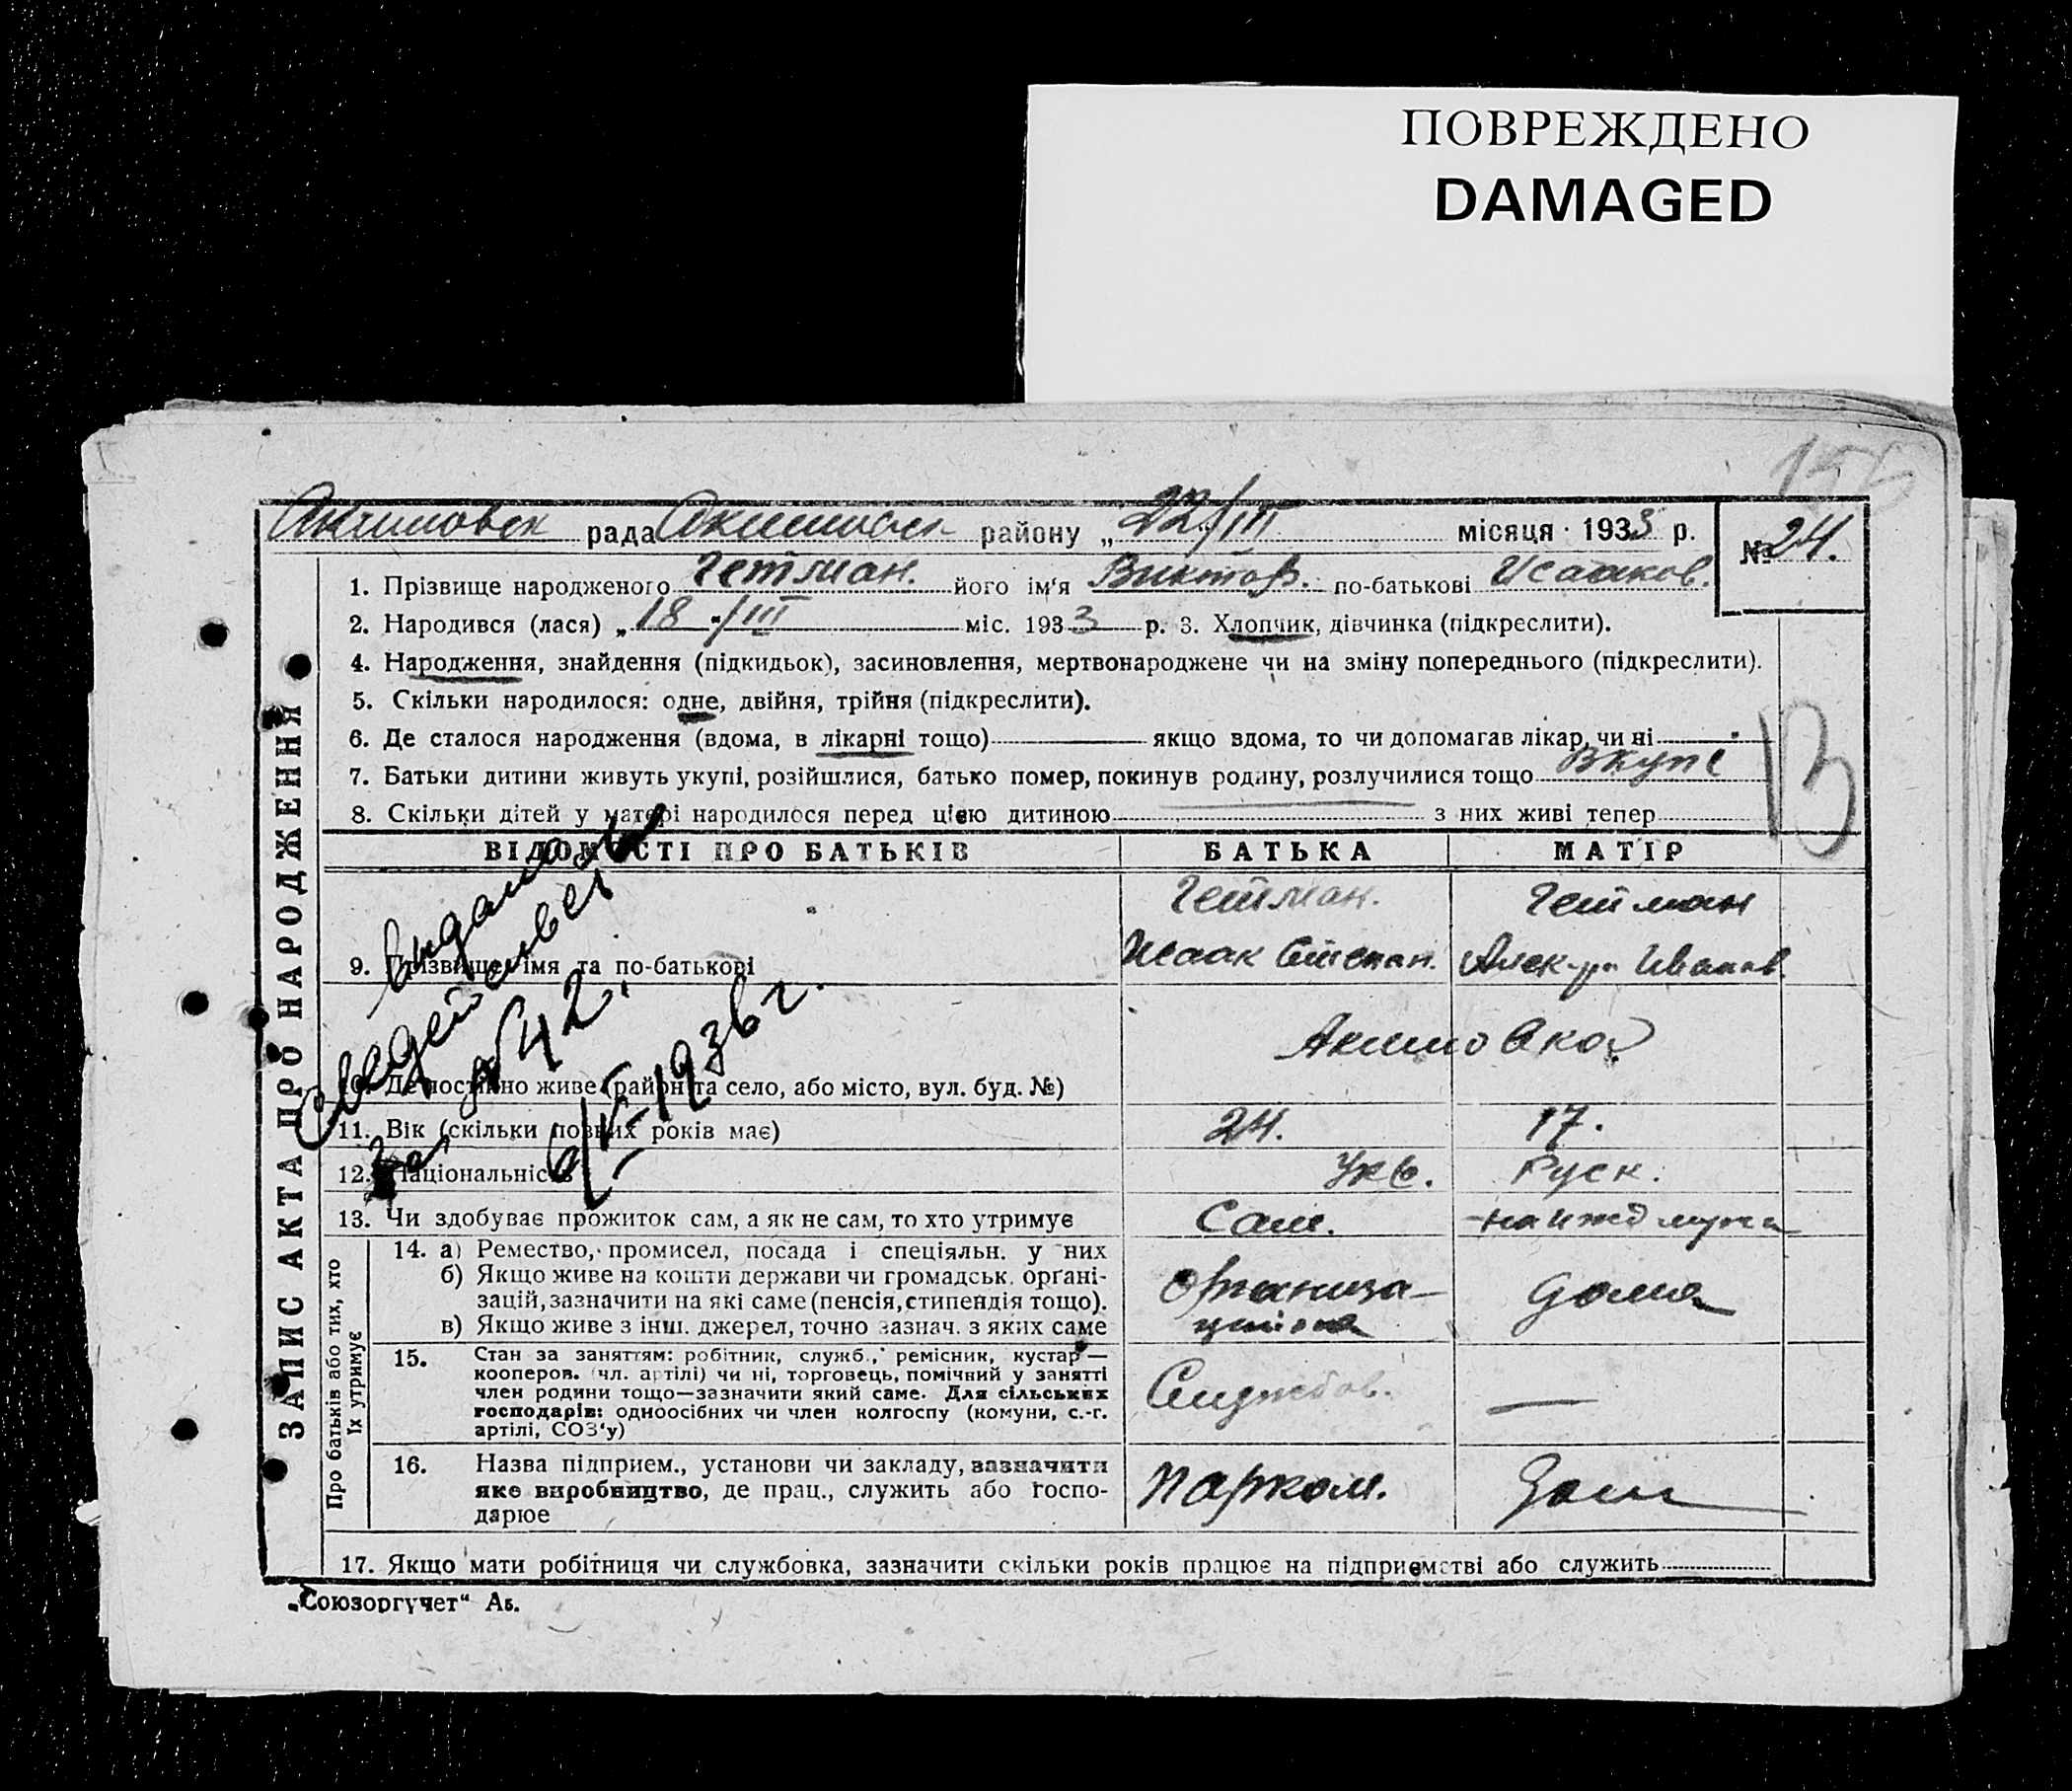 ПОВРЕЖДЕНО
DAMAGED
155
Акимовск рада Акимовск району „22/III місяця 1933 р. № 24.
1. Прізвище народженого Гетман. його ім'я Виктор. по-батькові Исааков.
2. Народився (лася) „18"/III міс. 1933 р. 3. Хлопчик, дівчинка (підкреслити).
4. Народження, знайдення (підкидьок), засиновлення, мертвонароджене чи на зміну попереднього (підкреслити).
5. Скільки народилося: одне, двійня, трійня (підкреслити).
6. Де сталося народження (вдома, в лікарні тощо) якщо вдома, то чи допомагав лікар, чи ні
7. Батьки дитини живуть укупі, розійшлися, батько помер, покинув родину, розлучилися тощо вкупі
8. Скільки дітей у матері народилося перед цією дитиною — з них живі тепер
ЗАПИС АКТА ПРО НАРОДЖЕННЯ
ВІДОМОСТІ ПРО БАТЬКІВ БАТЬКА МАТІР
Гетман. Гетман
9. Прізвище, імя та по-батькові Исаак Степан. Алек-ра Иванов
Акимовка
10. Де постійно живе (район та село, або місто, вул. буд. №)
11. Вік (скільки повних років має) 24. 17.
12. Національність Укр. Руск.
13. Чи здобуває прожиток сам, а як не сам, то хто утримує Сам. на ижд мужа
Про батьків або тих, хто їх утримує
14. а) Ремество, промисел, посада і спеціяльн. у них
б) Якщо живе на кошти держави чи громадськ. органі-
зацій, зазначити на які саме (пенсія, стипендія тощо).
в) Якщо живе з інш. джерел, точно зазнач. з яких саме
Организа- дома
15. Стан за заняттям: робітник, служб., ремісник, кустар—
кооперов. (чл. артілі) чи ні, торговець, помічний у занятті
член родини тощо—зазначити який саме. Для сільських
господарів: одноосібних чи член колгоспу (комуни, с.-г.
артілі, СОЗ'у)
Службов. —
16. Назва підприєм., установи чи закладу, зазначити
яке виробництво, де прац., служить або госпо-
дарює
Парком.
17. Якщо мати робітниця чи службовка, зазначити скільки років працює на підприємстві або служить
Видано
Свидетельство
За №42.
6/V-1936 г.
„Союзоргучет" Аб.